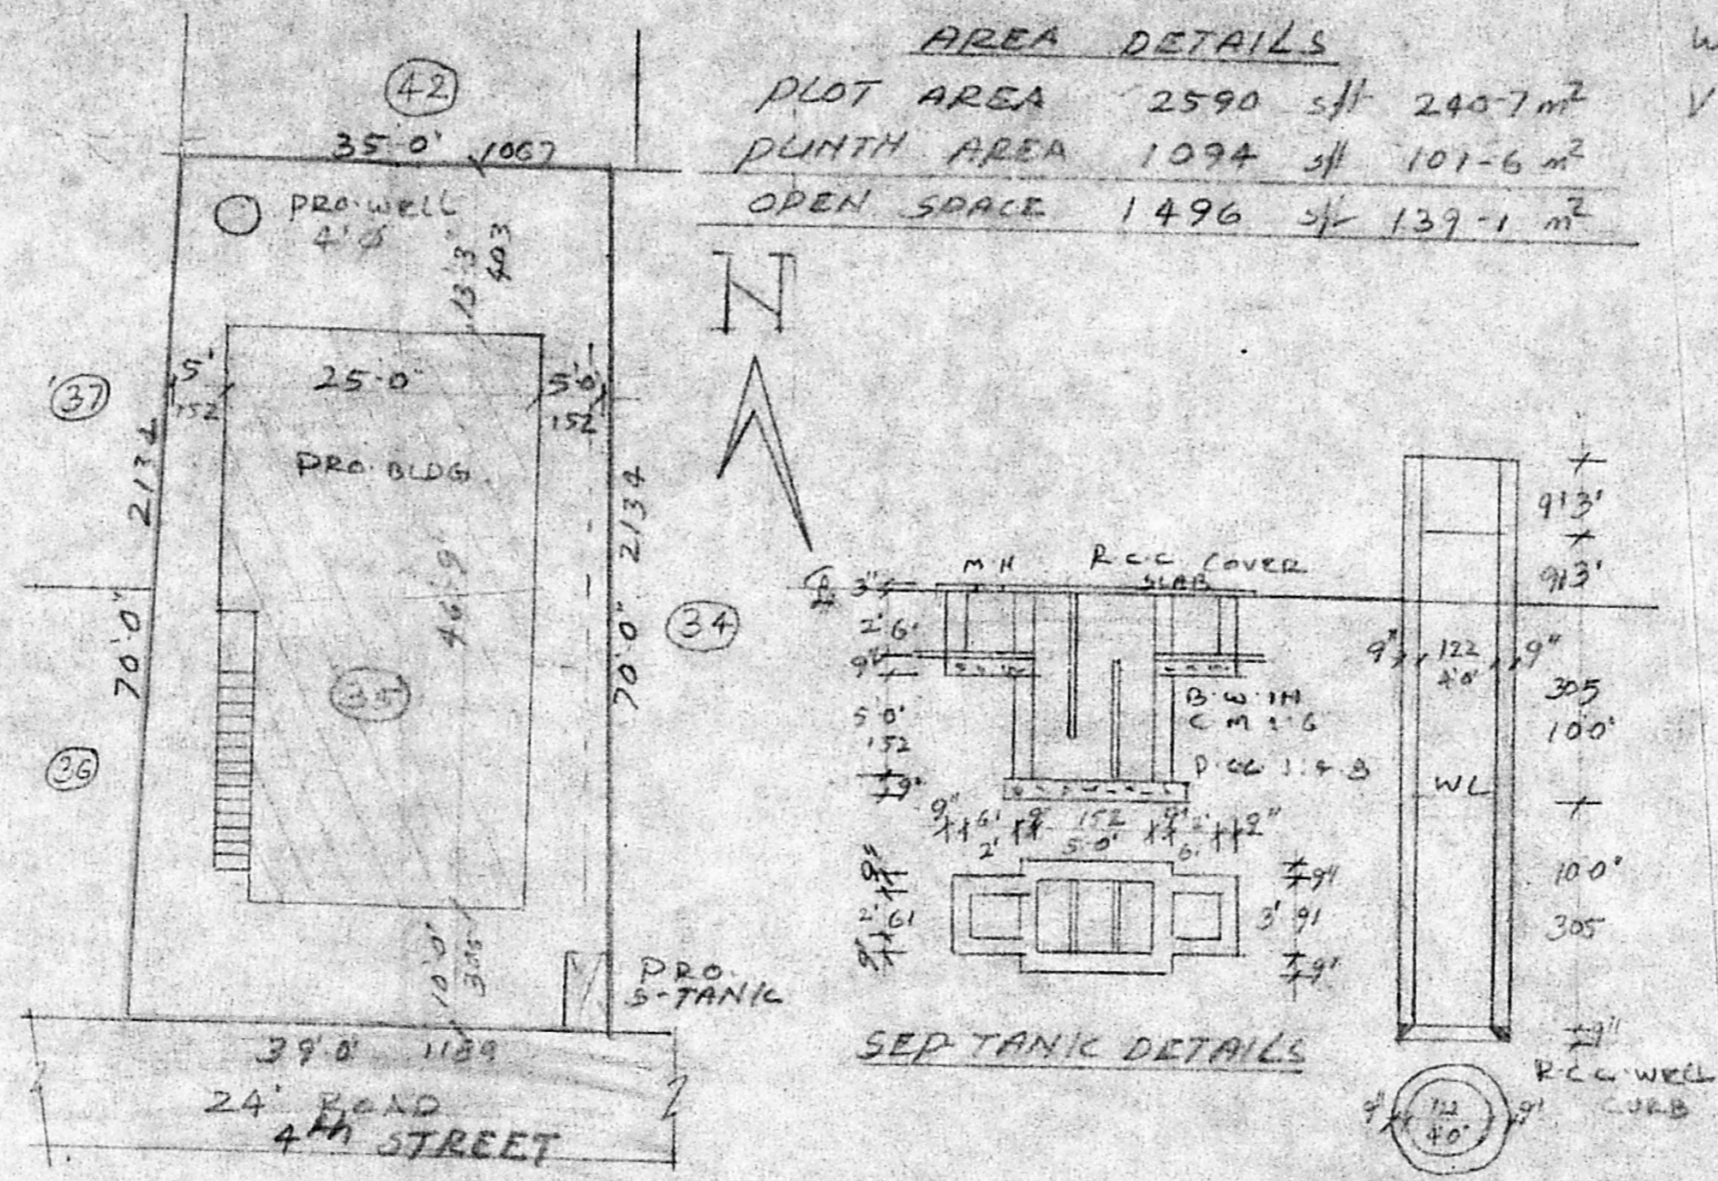 AREA DETAILS
PLOT AREA 2590 sft 240-7 m²
PLINTH AREA 1094 sft 101-6 m²
OPEN SPACE 1496 sft 139-1 m²
W
V
42
35'0" 1067
PRO. WELL
4'Ø
13'3"
403
N
37
5'
152
25-0"
5'0"
152
PRO. BLDG.
2134
70'0"
46'-9"
2134
70'0"
34
35
36
10'0"
305
PRO.
S-TANK
39'0" 1189
24' ROAD
4th STREET
M.H R.C.C COVER
SLAB
3"
2'6"
9"
5'0"
152
9"
B.W. IN
C M 1:6
P.CC 1:4:8
9" 6" 9" 152 9" 2' 9"
2' 5-0" 6"
9"
2'6"
9"
9"
3' 91
9"
SEP-TANK DETAILS
9'3"
9'3"
9" 122 9"
4'0"
305
10'0"
WL
10'0"
305
9"
R.C.C. WELL
CURB
9" 122 9"
4'0"